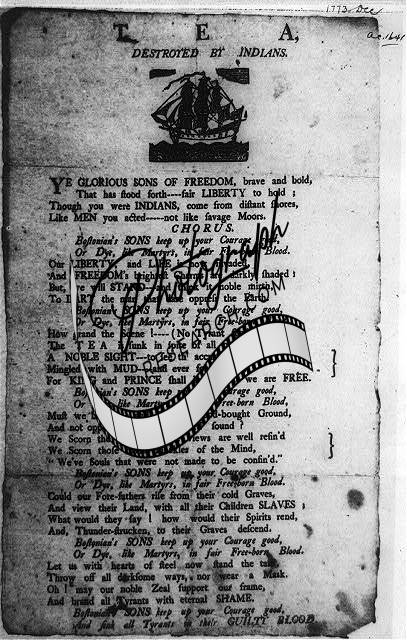 1773. Dec
a.c. 1641
TEA,
DESTROYED BY INDIANS.
YE GLORIOUS SONS OF FREEDOM, brave and bold,
That has ſtood forth----fair LIBERTY to hold ;
Though you were INDIANS, come from diſtant ſhores,
Like MEN you acted-----not like ſavage Moors.
CHORUS.
Boſtonian's SONS keep up your Courage good,
Or Dye, like Martyrs, in fair Blood.
Our LIBERTY, and LIFE is now invaded,
And FREEDOM's brighteſt Charms are darkly ſhaded :
But, STAND noble mirth,
To the oppreſs the Earth.
Boſtonian's SONS keep up your Courage good,
Or Dye, like Martyrs, in fair Free-born
How grand the Scene !---- ( No Tyrant
The TEA is ſunk in ſpite of all
A NOBLE SIGHT---to ſee
Mingled with MUD---and ever
For KING and PRINCE ſhall we are FREE.
Boſtonian's SONS keep courage good,
Or like Martyrs, born Blood.
Muſt we -bought Ground,
And not ſound ?
We Scorn the views are well refin'd
We Scorn thoſe of the Mind,
" We've Souls that were not made to be confin'd."
Boſtonian's SONS keep up your Courage good,
Or Dye, like Martyrs, in fair Free-born Blood.
Could our Fore-fathers riſe from their cold Graves,
And view their Land, with all their Children SLAVES ;
What would they ſay ! how would their Spirits rend,
And, Thunder-ſtrucken, to their Graves deſcend.
Boſtonian's SONS keep up your Courage good,
Or Dye, like Martyrs, in fair Free-born Blood.
Let us with hearts of ſteel now ſtand the taſk,
Throw off all darkſome ways, nor wear a Maſk.
Oh ! may our noble Zeal ſupport our frame,
And brand all Tyrants with eternal SHAME.
Boſtonian's SONS keep up your Courage good,
And ſink all Tyrants in their GUILTY BLOOD.
Photograph